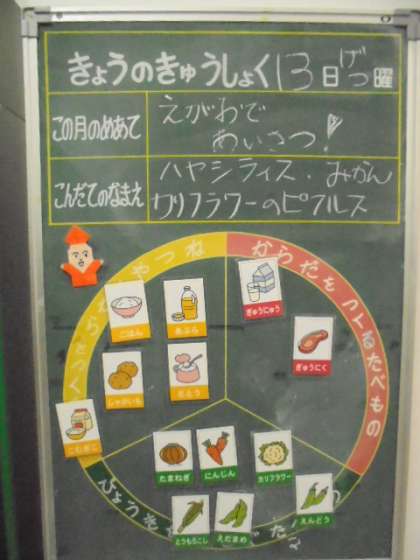 きょうのきゅうしょく 13日 げつ曜
この月のめあて
えがおで
あいさつ!
こんだてのなまえ
ハヤシライス・みかん
カリフラワーのピクルス
やつね
からだをつくるたべもの
ごはん
あぶら
ぎゅうにゅう
じゃがいも
さとう
ぎゅうにく
こむぎこ
たまねぎ
にんじん
カリフラワー
とうもろこし
えだまめ
えんどう
びょうき